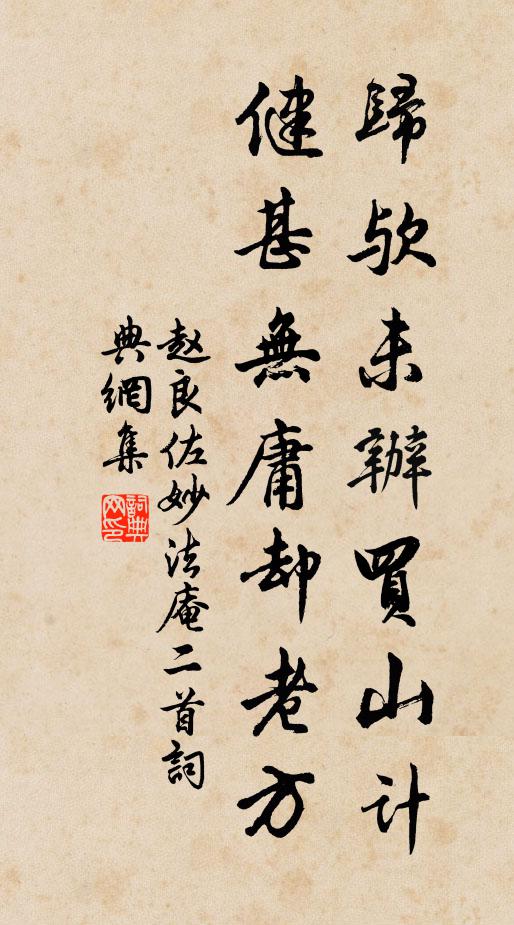 歸歟未辦買山計
健甚無庸却老方
赵良佐妙法庵二首詞
典網集
詞典
网印